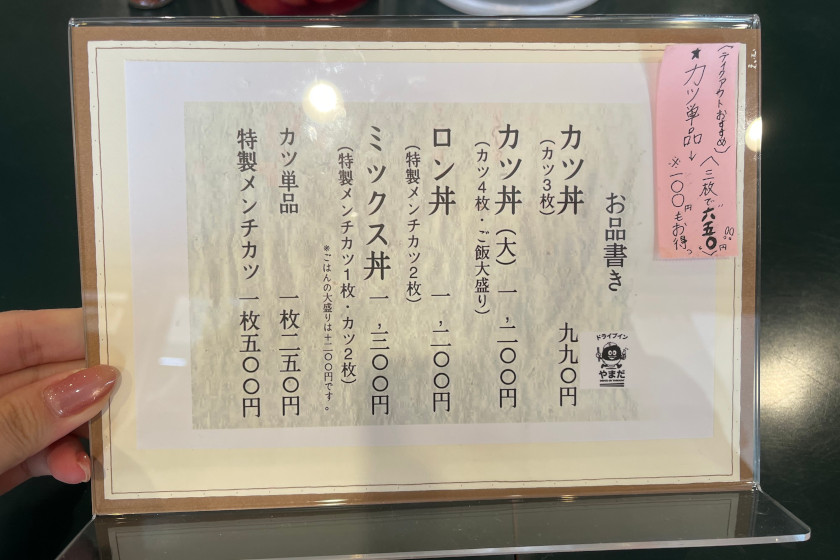 （テイクアウトおすすめ）
★カツ単品↓
〈三枚で六五〇円〉
※一〇〇円もお得っ
お品書き
ドライブイン
やまだ
カツ丼 九九〇円
（カツ3枚）
カツ丼（大） 一,二〇〇円
（カツ4枚・ご飯大盛り）
ロン丼 一,二〇〇円
（特製メンチカツ2枚）
ミックス丼 一,三〇〇円
（特製メンチカツ1枚・カツ2枚）
※ごはんの大盛りは＋二〇〇円です。
カツ単品 一枚二五〇円
特製メンチカツ 一枚五〇〇円